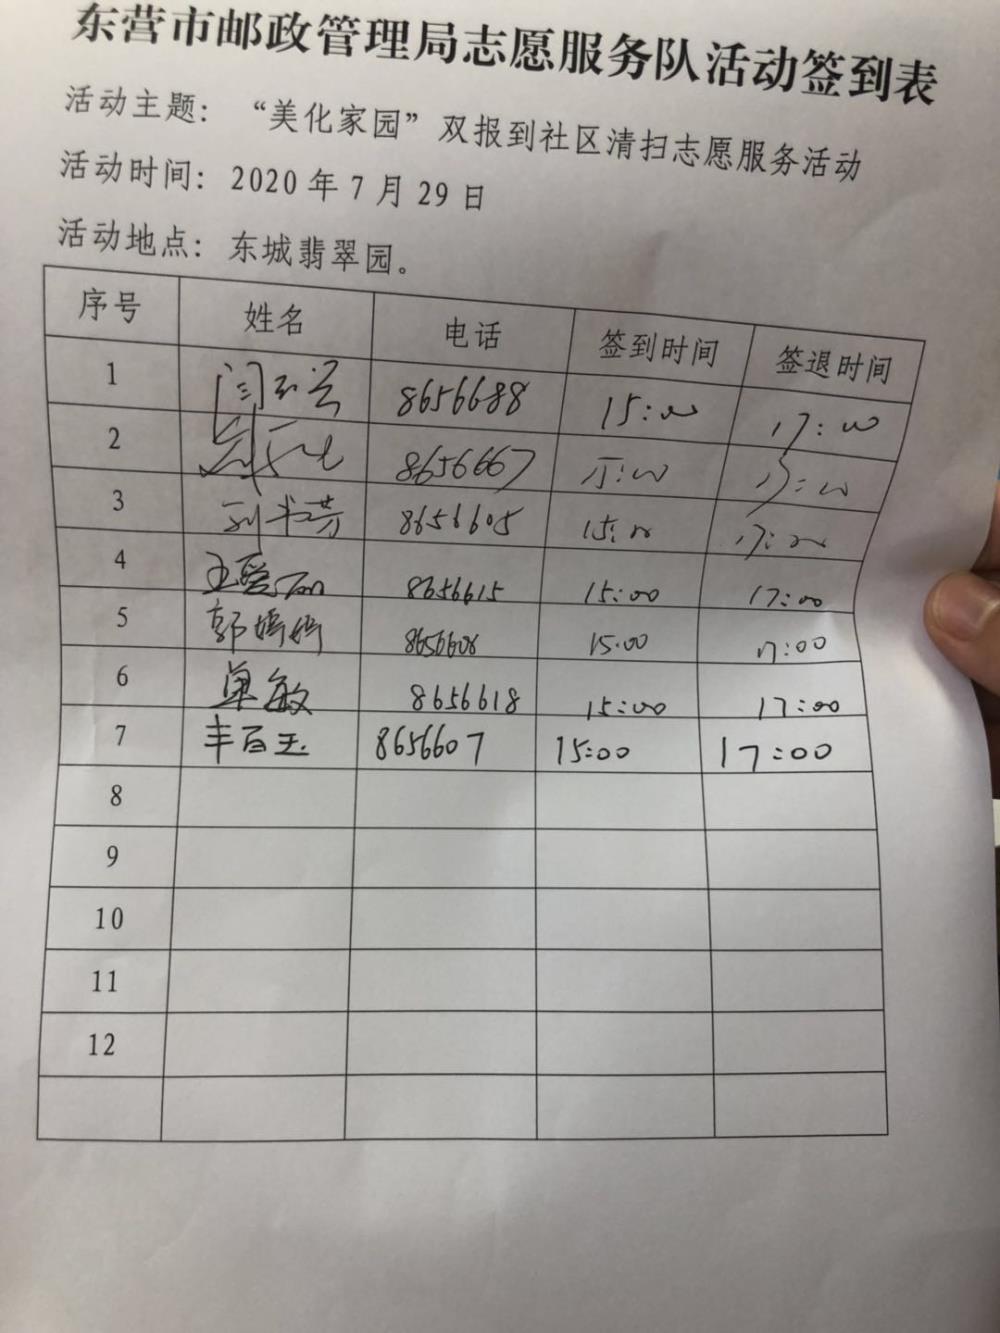 东营市邮政管理局志愿服务队活动签到表
活动主题：“美化家园”双报到社区清扫志愿服务活动
活动时间：2020年7月29日
活动地点：东城翡翠园。
序号 姓名 电话 签到时间 签退时间
1 闫 8656688 15:00 17:00
2 8656667 15:00 17:00
3 刘书芳 8656605 15:00 17:00
4 王爱丽 8656615 15:00 17:00
5 郭婷婷 8656608 15:00 17:00
6 单敏 8656618 15:00 17:00
7 丰百玉 8656607 15:00 17:00
8
9
10
11
12